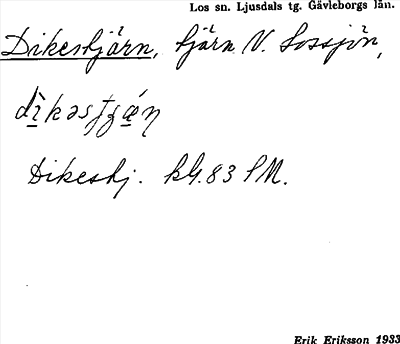 Los sn. Ljusdals tg. Gävleborgs län.
Dikestjärn, tjärn V. Lossjön,
Dikestj. kG. 83 SM.
Erik Eriksson 1933